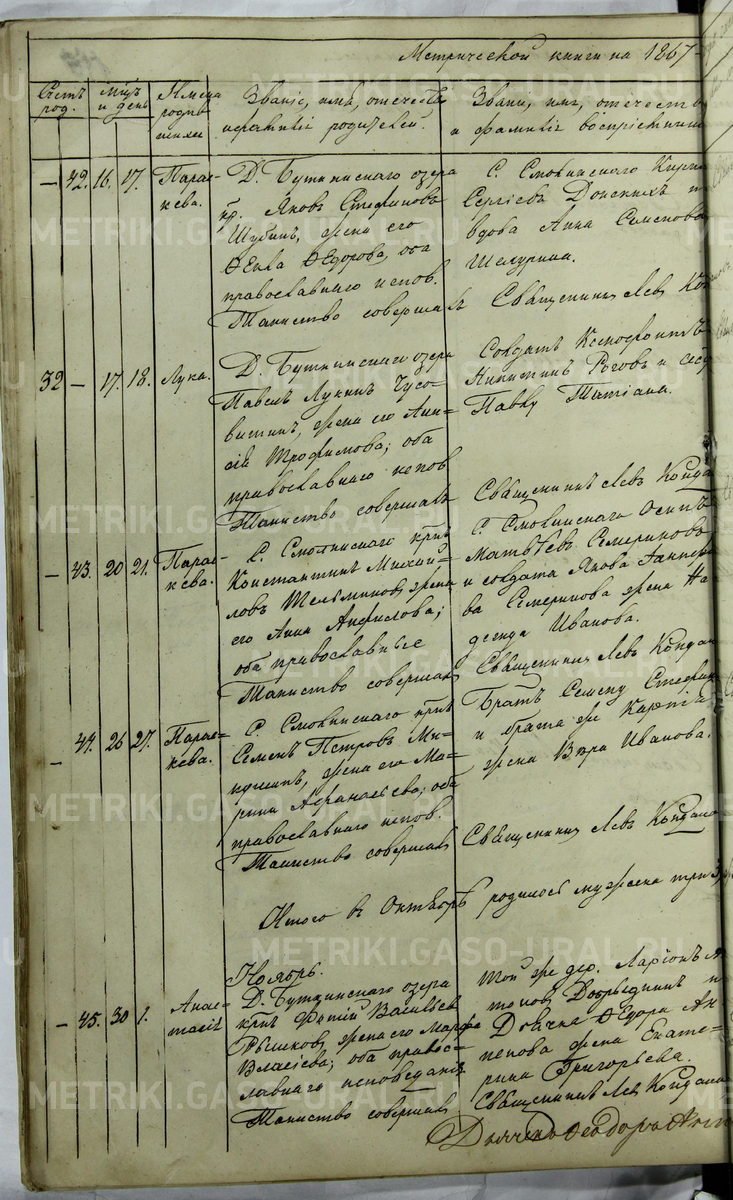 Метрической книги на 1867
Счетъ род.
Мцъ и день
Имена родив шихся
Званіе, имя, отечество и фамилія родителей.
Званіе, имя, отечество и фамилія воспріемник
— 42. 16. 17. Парас-
кева.
Д. Буткинскаго озера
кр. Яковъ Стефановъ
Шубинъ, жена его
Ѳекла Ѳедорова, оба
православнаго испов.
Таинство совершалъ
С. Смолинскаго Кирил
Сергіевъ Донскихъ и
вдова Анна Семенова
Шелурина.
Священникъ Левъ Кон
32 — 17. 18. Лука.
Д. Буткинскаго озера
Павелъ Лукинъ Чусо-
витинъ, жена его Ани-
сія Трофимова; оба
православнаго испов
Таинство совершалъ
Солдатъ Ксенофонтъ
Никитинъ Роговъ и
Павлу Татіана.
Священникъ Левъ Конда
— 43. 20 21. Парас-
кева.
С. Смолинскаго крнъ
Константинъ Михай-
ловъ Шельминовъ, жена
его Анна Анфилова;
оба православные
Таинство совершалъ
С. Смолинскаго Осипъ
Матвѣевъ Семериковъ
и солдата Якова
ва Семерикова жена На
дежда Иванова.
Священникъ Левъ Кондак
— 44. 26 27. Парас-
кева.
С. Смолинскаго крнъ
Семенъ Петровъ Ми-
нушинъ, жена его Ма-
рина Афанасьева; оба
православнаго испов.
Таинство совершалъ
Братъ Семену Стефан
и брата же
жена Вѣра Иванова.
Священникъ Левъ Кондако
Итого въ Октябрѣ родилось мужеска три
Ноябрь.
— 45. 30 1. Анас-
тасія
Д. Буткинскаго озера
крнъ Фотій Васильевъ
Рѣшковъ, жена его Марфа
Власіева; оба правос-
лавнаго исповеданія
Таинство совершалъ
Той же дер. Ларіонъ А
тоновъ Добрыднинъ и
Дьячка Ѳедора Ан
пепова жена Екате-
рина Григорьева.
Священникъ Левъ Кондако
Дьячекъ Ѳеодоръ
METRIKI.GASO-URAL.RU
METRIKI.GASO-URAL.RU
METRIKI.GASO-URAL.RU
METRIKI.GASO-URAL.RU
METRIKI.GASO-URAL.RU
METRIKI.GASO-URAL.RU
METRIKI.GASO-URAL.RU